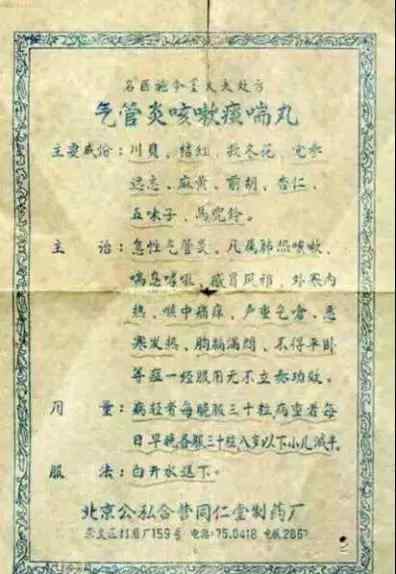 名医施今墨大夫处方
气管炎咳嗽痰喘丸
主要成份：川貝、桔红、款冬花、党参
远志、麻黄、前胡、杏仁、
五味子、馬兜铃。
主 治：急性气管炎、凡属肺热咳嗽、
喘息哮吼、感冒风邪、外寒内
热、喉中痛痒、声重气呛、恶
寒发热、胸膈满闷、不得平卧
等症一经服用无不立奏功效。
用 量：病轻者每晚服三十粒，病重者每
日早晚各服三十粒，八岁以下小儿减半。
服 法：白开水送下。
北京公私合营同仁堂制药厂
崇文区打磨厂159号 电话：75.0418 电报2867